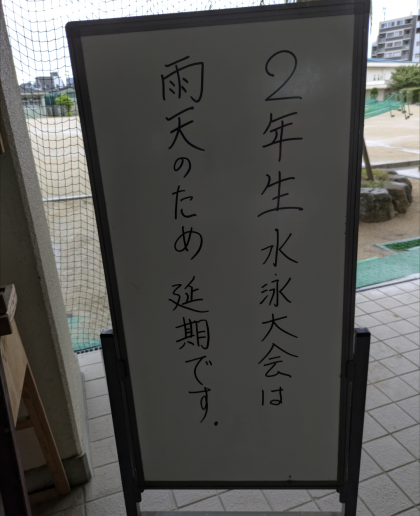 2年生水泳大会は
雨天のため延期です.